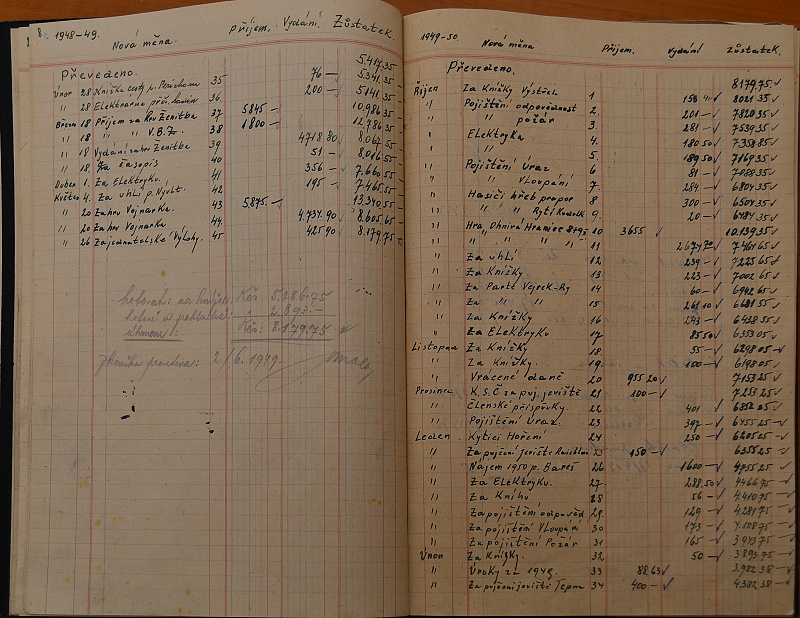 8.
1948-49. Nová měna. Příjem. Vydání. Zůstatek.
Převedeno. 5.417.35
Únor 28 Knížka cesty p. 35 76 — 5.341.35
" 28 Elektrárna 36 200 — 5.141.35
Březen 18 Příjem za hru Ženitba 37 5845 — 10.986.35
" 18 " " V.B. 38 1800 — 12.786.35
" 18 Vydání za hru Ženitba 39 4718 80 8.067.55
" 18 Za časopis 40 51 — 8.016.55
Duben 1. Za Elektryku. 41 356 — 7.660.55
Květen 4. Za uhlí p. 42 195 — 7.465.55
" 20 Za hru Vojnarka. 43 5.875 — 13.340.55
" 20 Za hru Vojnarka 44. 4.734.90 8.605.65
" 26 Zajednatelské Výlohy. 45 425 90 8.179.75
hotovosti na Kčs 5.286.75
" 2.893.-
Kčs: 8.179.75
2./6. 1949.
1949-50. Nová měna Příjem. Vydání Zůstatek.
Převedeno. 8179.75
Říjen Za Knížky Výstřch 1 158 40 8021 35
" Pojištění odpovědnost 2. 201 — 7820 35
" " požár 3. 281 — 7539.35
" Elektryka 4. 180 50 7358 85
" " 5. 189 50 7169 35
" Pojištění Úraz 6 81 — 7088 35
" " Vloupání 7. 284 — 6804 35
" Hasiči hřeb prapor 8 300 — 6504 35
" " " Rytí 9. 20 — 6484 35
" Hra, Ohnivá Hranice 10 3655 10.139.35
" " " " 11 2677 70 7461 65
" Za uhlí 12 239 — 7222 65
" Za Knížky 13 223 — 7002 65
" Za Parte 14 60 — 6942 65
" Za " " 15 261 10 6681 55
" Za Knížky 16 243 — 6438 55
" Za Elektryku 17 85 50 6353 05
Listopad Za Knížky 18 55 — 6298 05
" Za Knížky. 19. 100 — 6198 05
" Vrácené daně 20 955 20 7153 25
Prosinec K.S.Č za půj. jeviště 21 100 — 7253 25
" Členské příspěvky. 22 401 6852 25
" Pojištění Úraz. 23 397 — 6455 25
Leden Kytici Hoření 24 250 — 6205 05
" Za pujčení jeviště 25 150 — 6355 25
" Nájem 1950 p. Bareš 26 1600 — 4755 25
" Za Elektryku. 27. 288.50 4466 75
" Za Knihu 28 56 — 4.410 75
" Za pojištění odpověd 29. 129 — 4.281 75
" Za pojištění Vloupání 30 173 — 4.108 75
" Za pojištění Požár 31 165 — 3.943 75
Únor Za Knížky. 32 50 — 3.893 75
" Úroky za 1948. 33 88.63 3.982 38
" Za pujčení jeviště Tepna 34 400 — 4.382 38